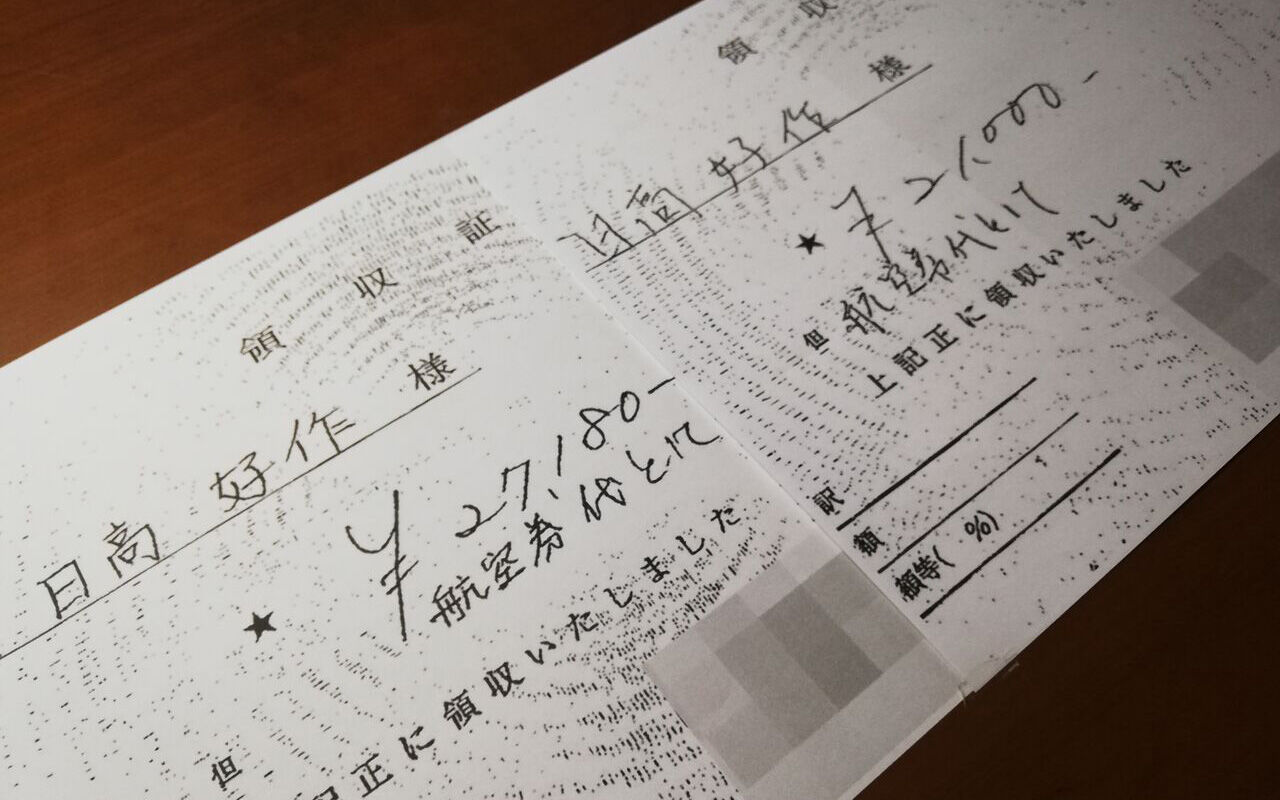 領収証
日高 好作 様
★ ¥27,180-
但 航空券代として
記正に領収いたしました
領収
日高 好作 様
★ ¥21,000-
但 航空券代として
上記正に領収いたしました
訳
額
額等( %)